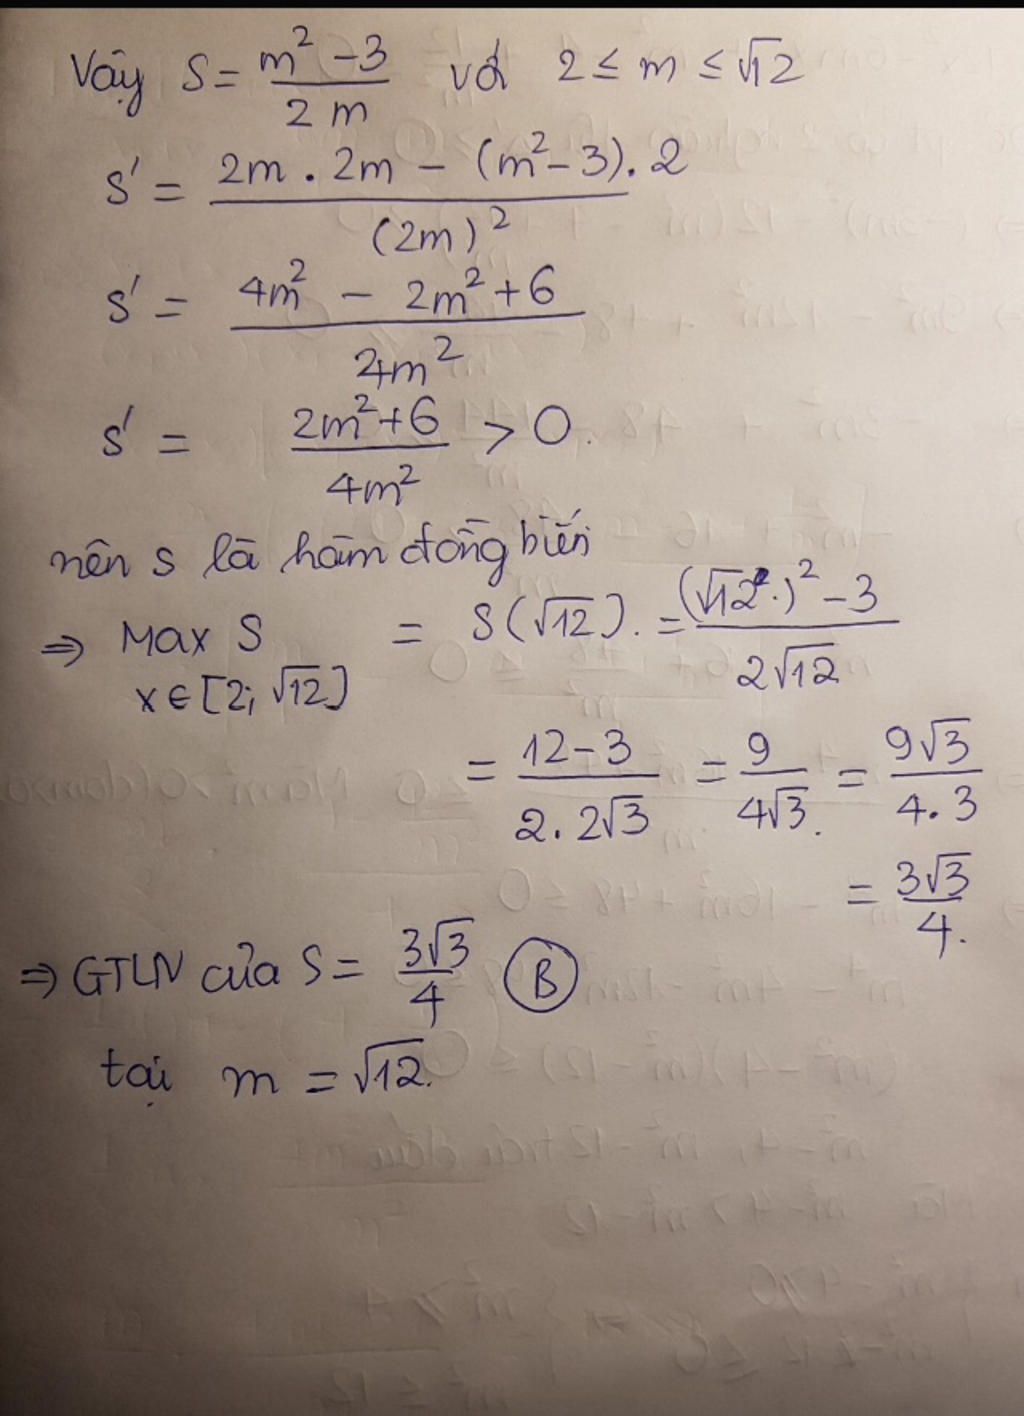 Vậy S = \frac{m^2 - 3}{2 m} với 2 ≤ m ≤ √12
S' = \frac{2m . 2m - (m^2 - 3). 2}{(2m)^2}
S' = \frac{4m^2 - 2m^2 + 6}{4m^2}
S' = \frac{2m^2 + 6}{4m^2} > 0.
nên S là hàm đồng biến
⇒ Max S = S(√12). = \frac{(√12.)^2 - 3}{2√12}
x ∈ [2; √12]
= \frac{12 - 3}{2. 2√3} = \frac{9}{4√3.} = \frac{9√3}{4. 3}
= \frac{3√3}{4.}
⇒ GTLN của S = \frac{3√3}{4} B
tại m = √12.